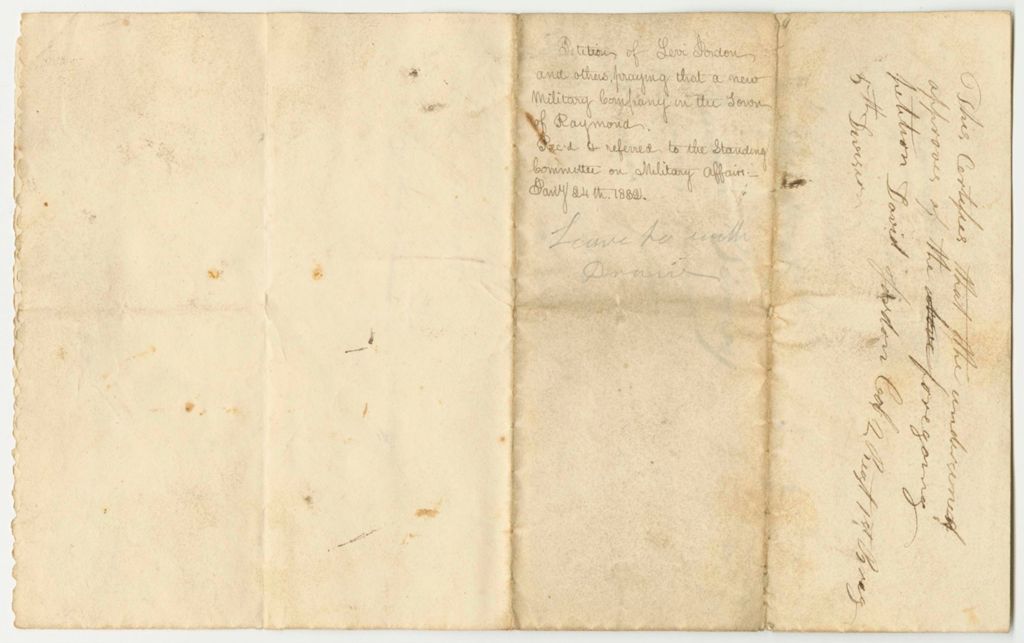 Petition of Levi Jordon
and others, praying that a new
Military Company in the Town
of Raymond.
Rec'd & referred to the Standing
Committee on Military Affairs.—
Jan'y 24th. 1832.
Leave to with
Drawn
This Certifies that the undersined
approves of the above foregoing
petition David Jordon Col 2 Regt 1st Breg
5th Division